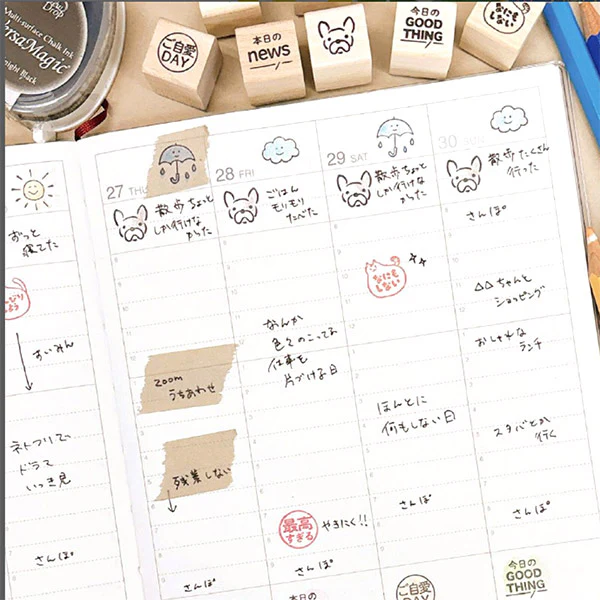 Drop
Multi-surface Chalk Ink
VersaMagic
Midnight Black
ご自愛
DAY
本日の
news
今日の
GOOD
THING
なにも
しない
ずっと
寝てた
すいみん
ネトフリで
ドラマ
いっき見
さんぽ
27 THU
散歩ちょっと
しか行けな
かった
zoom
うちあわせ
残業しない
さんぽ
28 FRI
ごはん
もりもり
たべた
なんか
色々のこってる
仕事を
片づける日
最高
すぎる
やきにく!!
さんぽ
本日の
29 SAT
散歩ちょっと
しか行けな
かった
なにも
しない
ほんとに
何もしない日
さんぽ
ご自愛
DAY
30 SUN
散歩たくさん
行った
さんぽ
△△ちゃんと
ショッピング
おしゃれな
ランチ
スタバとか
行く
さんぽ
今日の
GOOD
THING